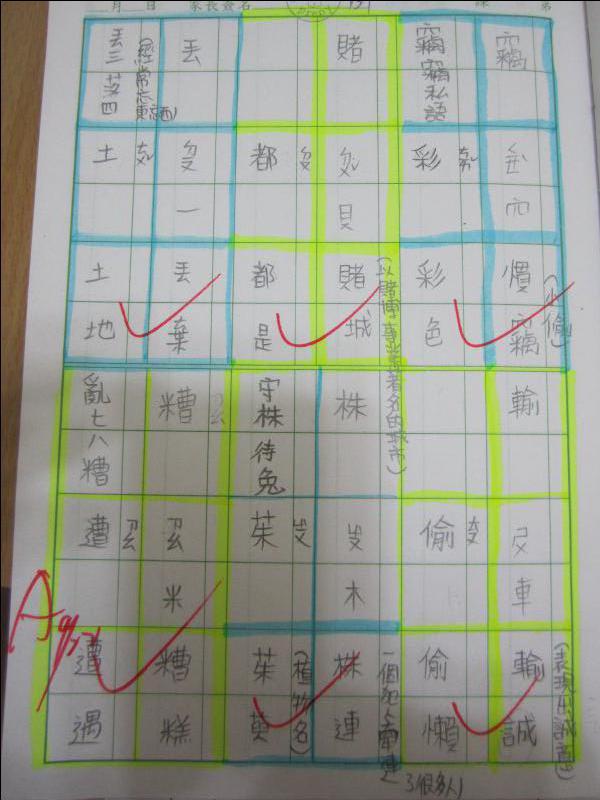 月 日 家長簽名
竊
穴
慣竊
(小偷)
竊竊私語
彩 ㄘㄞˇ
彩色
賭
ㄉㄨˇ
貝
賭城
(以賭博事業著名的城市)
都 ㄉㄡ
都是
丟
ㄉㄧㄡ
一
丟棄
丟三落四
(經常忘東忘西)
土 ㄊㄨˇ
土地
輸
車
輸誠
(表現出誠意)
偷 ㄊㄡ
偷懶
株
ㄓㄨ
木
株連
守株待兔
茱 ㄓㄨ
茱萸
(植物名)
糟
ㄗㄠ
米
糟糕
亂七八糟
遭 ㄗㄠ
遭遇
A